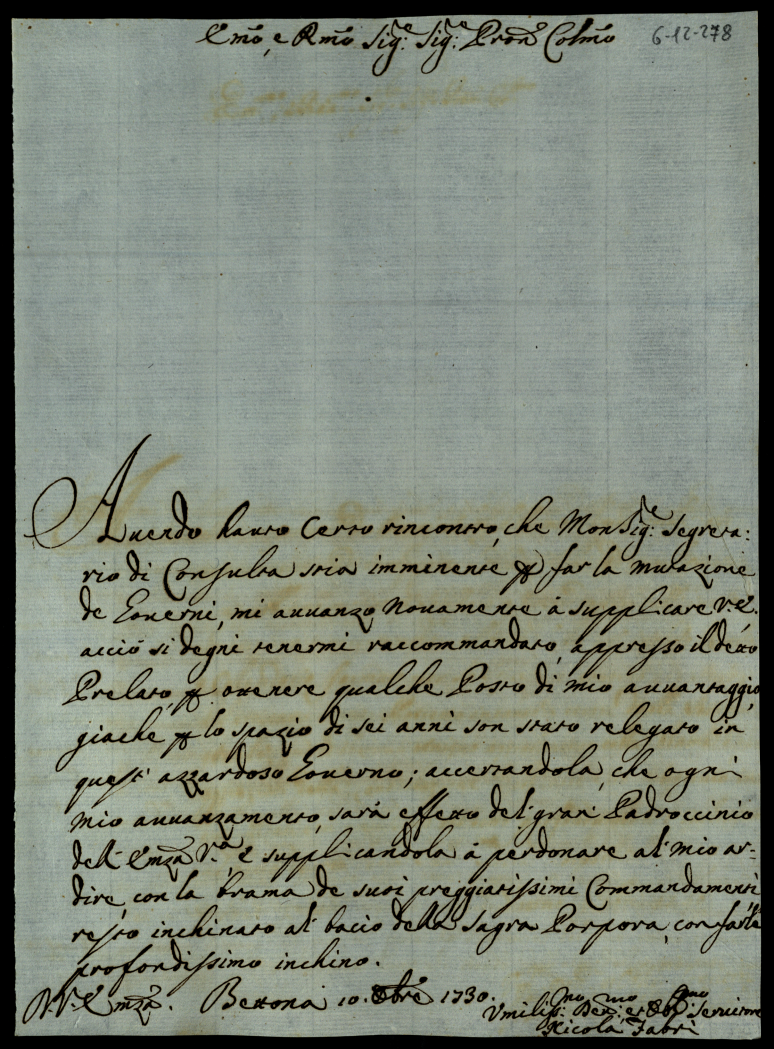 Emo, e Rmo Sig:e Sig:e Pron Colmo
6-12-278
Auendo hauto Certo rincontro, che MonSig:e Segreta:
rio di Consulta stia imminente p far la mutazione
de Gouerni, mi auuanzo nouamente á supplicare V: E.
acciò si degni tenermi raccommandato, appresso il detto
Prelato, p ottenere qualche Posto di mio auuantaggio,
giache p lo spazio di sei anni son stato relegato in
quest' azzardoso Gouerno; accertandola, che ogni
mio auuanzamento, sarà effetto del gran Padroccinio
dell' Emza V:a E supplicandola á perdonare al mio ar-
dire, con la brama de suoi preggiatissimi Commandamenti
resto inchinato al bacio della Sagra Porpora, con farle
profondissimo inchino.
D. V: Emza. Bettona 10. Obre 1730.
Vmiliss:mo Deu:mo et Obl:mo Seruitore
Nicola Fabri